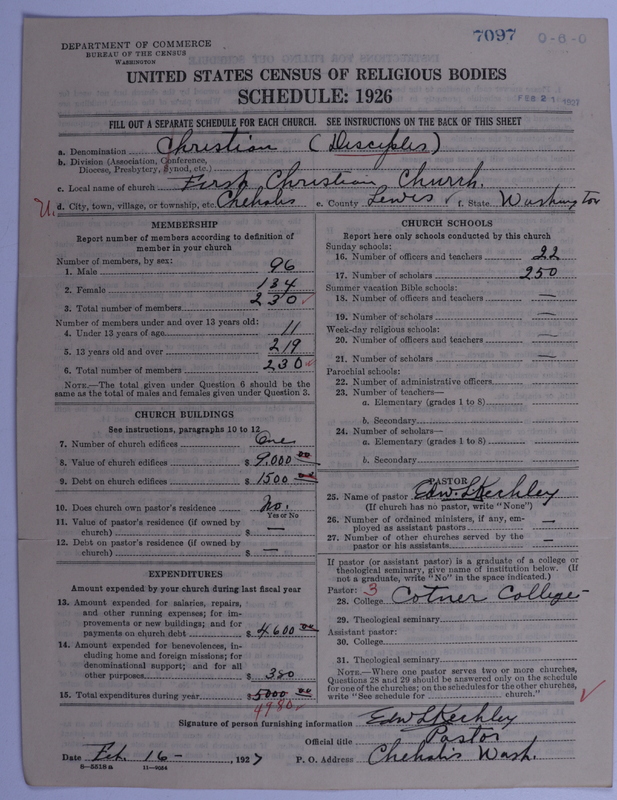 7097 0-6-0
DEPARTMENT OF COMMERCE
BUREAU OF THE CENSUS
WASHINGTON
UNITED STATES CENSUS OF RELIGIOUS BODIES
SCHEDULE: 1926
FEB 21 1927
FILL OUT A SEPARATE SCHEDULE FOR EACH CHURCH. SEE INSTRUCTIONS ON THE BACK OF THIS SHEET
a. Denomination Christian (Disciples)
b. Division (Association, Conference,
Diocese, Presbytery, Synod, etc.)
c. Local name of church First Christian Church.
U. d. City, town, village, or township, etc. Chehalis e. County Lewis f. State Washington
MEMBERSHIP
Report number of members according to definition of
member in your church
Number of members, by sex:
1. Male 96
2. Female 134
3. Total number of members 230 ✓
Number of members under and over 13 years old:
4. Under 13 years of age 11
5. 13 years old and over 219
6. Total number of members 230 ✓
NOTE.—The total given under Question 6 should be the
same as the total of males and females given under Question 3.
CHURCH BUILDINGS
See instructions, paragraphs 10 to 12
7. Number of church edifices One
8. Value of church edifices $ 9,000
9. Debt on church edifices $ 1500
10. Does church own pastor's residence No.
Yes or No
11. Value of pastor's residence (if owned by
church) $ —
12. Debt on pastor's residence (if owned by
church) $ —
EXPENDITURES
Amount expended by your church during last fiscal year
13. Amount expended for salaries, repairs,
and other running expenses; for im-
provements or new buildings; and for
payments on church debt $ 4,600
14. Amount expended for benevolences, in-
cluding home and foreign missions; for
denominational support; and for all
other purposes $ 380
15. Total expenditures during year $ 5000
4980 ✓
CHURCH SCHOOLS
Report here only schools conducted by this church
Sunday schools:
16. Number of officers and teachers 22
17. Number of scholars 250
Summer vacation Bible schools:
18. Number of officers and teachers —
19. Number of scholars —
Week-day religious schools:
20. Number of officers and teachers —
21. Number of scholars —
Parochial schools:
22. Number of administrative officers
23. Number of teachers—
a. Elementary (grades 1 to 8)
b. Secondary
24. Number of scholars—
a. Elementary (grades 1 to 8)
b. Secondary
PASTOR
25. Name of pastor Edw. L Kechley
(If church has no pastor, write "None")
26. Number of ordained ministers, if any, em-
ployed as assistant pastors —
27. Number of other churches served by the
pastor or his assistants —
If pastor (or assistant pastor) is a graduate of a college or
theological seminary, give name of institution below. (If
not a graduate, write "No" in the space indicated.)
Pastor: 3
28. College Cotner College—
29. Theological seminary
Assistant pastor:
30. College
31. Theological seminary
NOTE.—Where one pastor serves two or more churches,
Questions 28 and 29 should be answered only on the schedule
for one of the churches; on the schedules for the other churches,
write "See schedule for church." ✓
Signature of person furnishing information Edw L Kechley
Official title Pastor
Date Feb. 16—, 1927 P. O. Address Chehalis Wash.
8—5518 a 11—9084